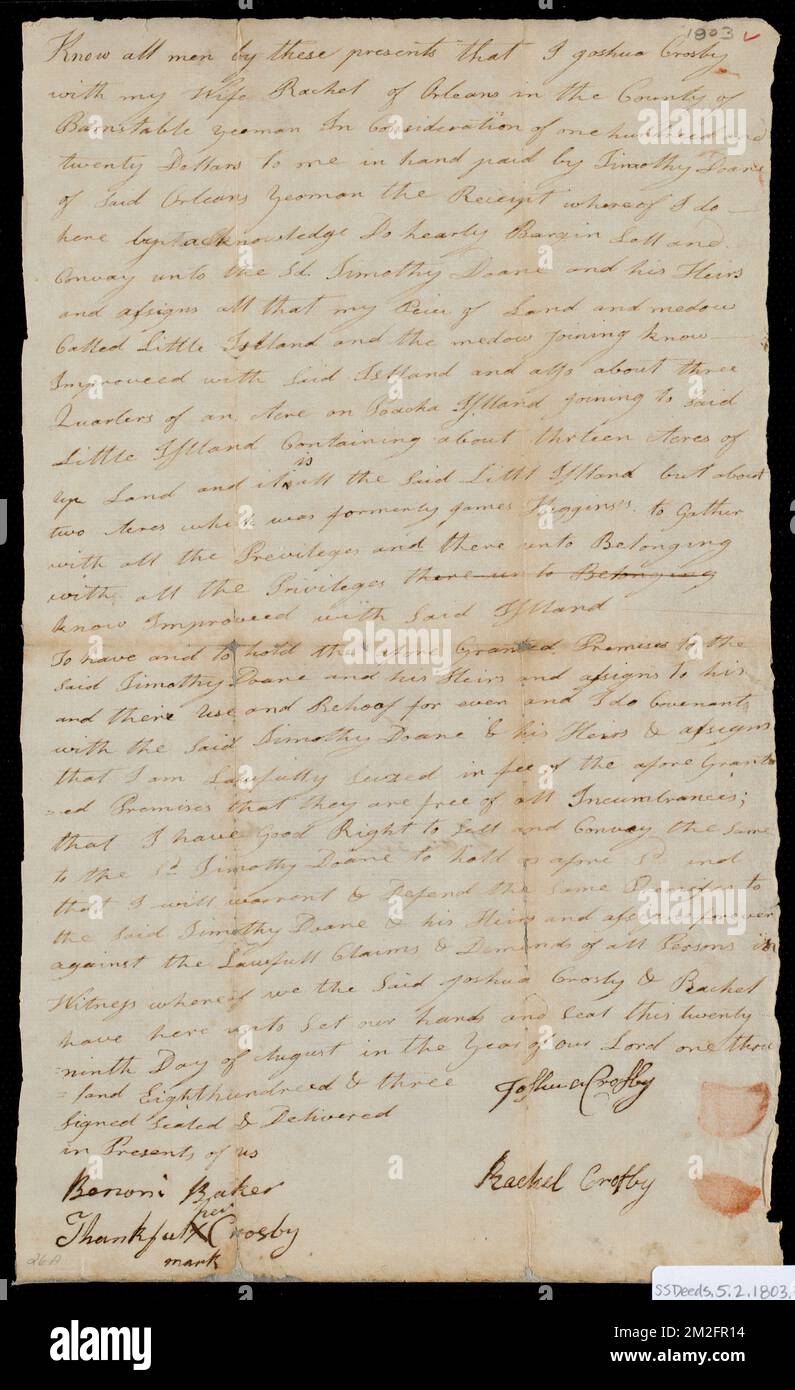 1803
Know all men by these presents that I Joshua Crosby
with my Wife Rachel of Orleans in the County of
Barnstable yeoman In Consideration of one hundred and
twenty Dollars to me in hand paid by Timothy Doane
of Said Orleans Yeoman the Receipt whereof I do
here by acknowledge Do hearby Bargin Sell and
Convay unto the Sd. Timothy Doane and his Heirs
and assigns all that my Peice of Land and medow
Called Little Istland and the medow joining know
Improveed with Said Istland and allso about three
Quarters of an Acre on Istland joining to Said
Little Istland Containing about thirteen Acres of
up Land and it is all the Said Littl Istland but about
two Acres which was formerly James Higginses to Gather
with all the Previleges and there unto Belonging
with all the Privileges there unto Belonging
know Improveed with Said Istland
To have and to hold the afore Granted Premises to the
Said Timothy Doane and his Heirs and assigns to his
and there Use and Behoof for ever and I do Covenant
with the Said Timothy Doane & his Heirs & assigns
that I am Lawfully Seized in fee of the afore Grant
=ed Premises that they are free of all Incumbrances;
that I have Good Right to Sell and Convay the Same
to the Sd Timothy Doane to hold as afore Sd and
that I will warrent & Defend the Same Premises to
the Said Timothy Doane & his Heirs and assigns forever
against the Lawfull Claims & Demands of all Persons in
Witness whereof we the Said Joshua Crosby & Rachel
have here unto Set our hands and Seal this twenty
ninth Day of August in the Year of our Lord one thou
=sand Eighthundreed & three
Signed Sealed & Delivered
in Presents of us
Joshua Crosby
Benoni Baker
Rachel Crosby
her
Thankful X Crosby
mark
26A
SSDeeds.5.2.1803.
alamy
Image ID: 2M2FR14
www.alamy.com